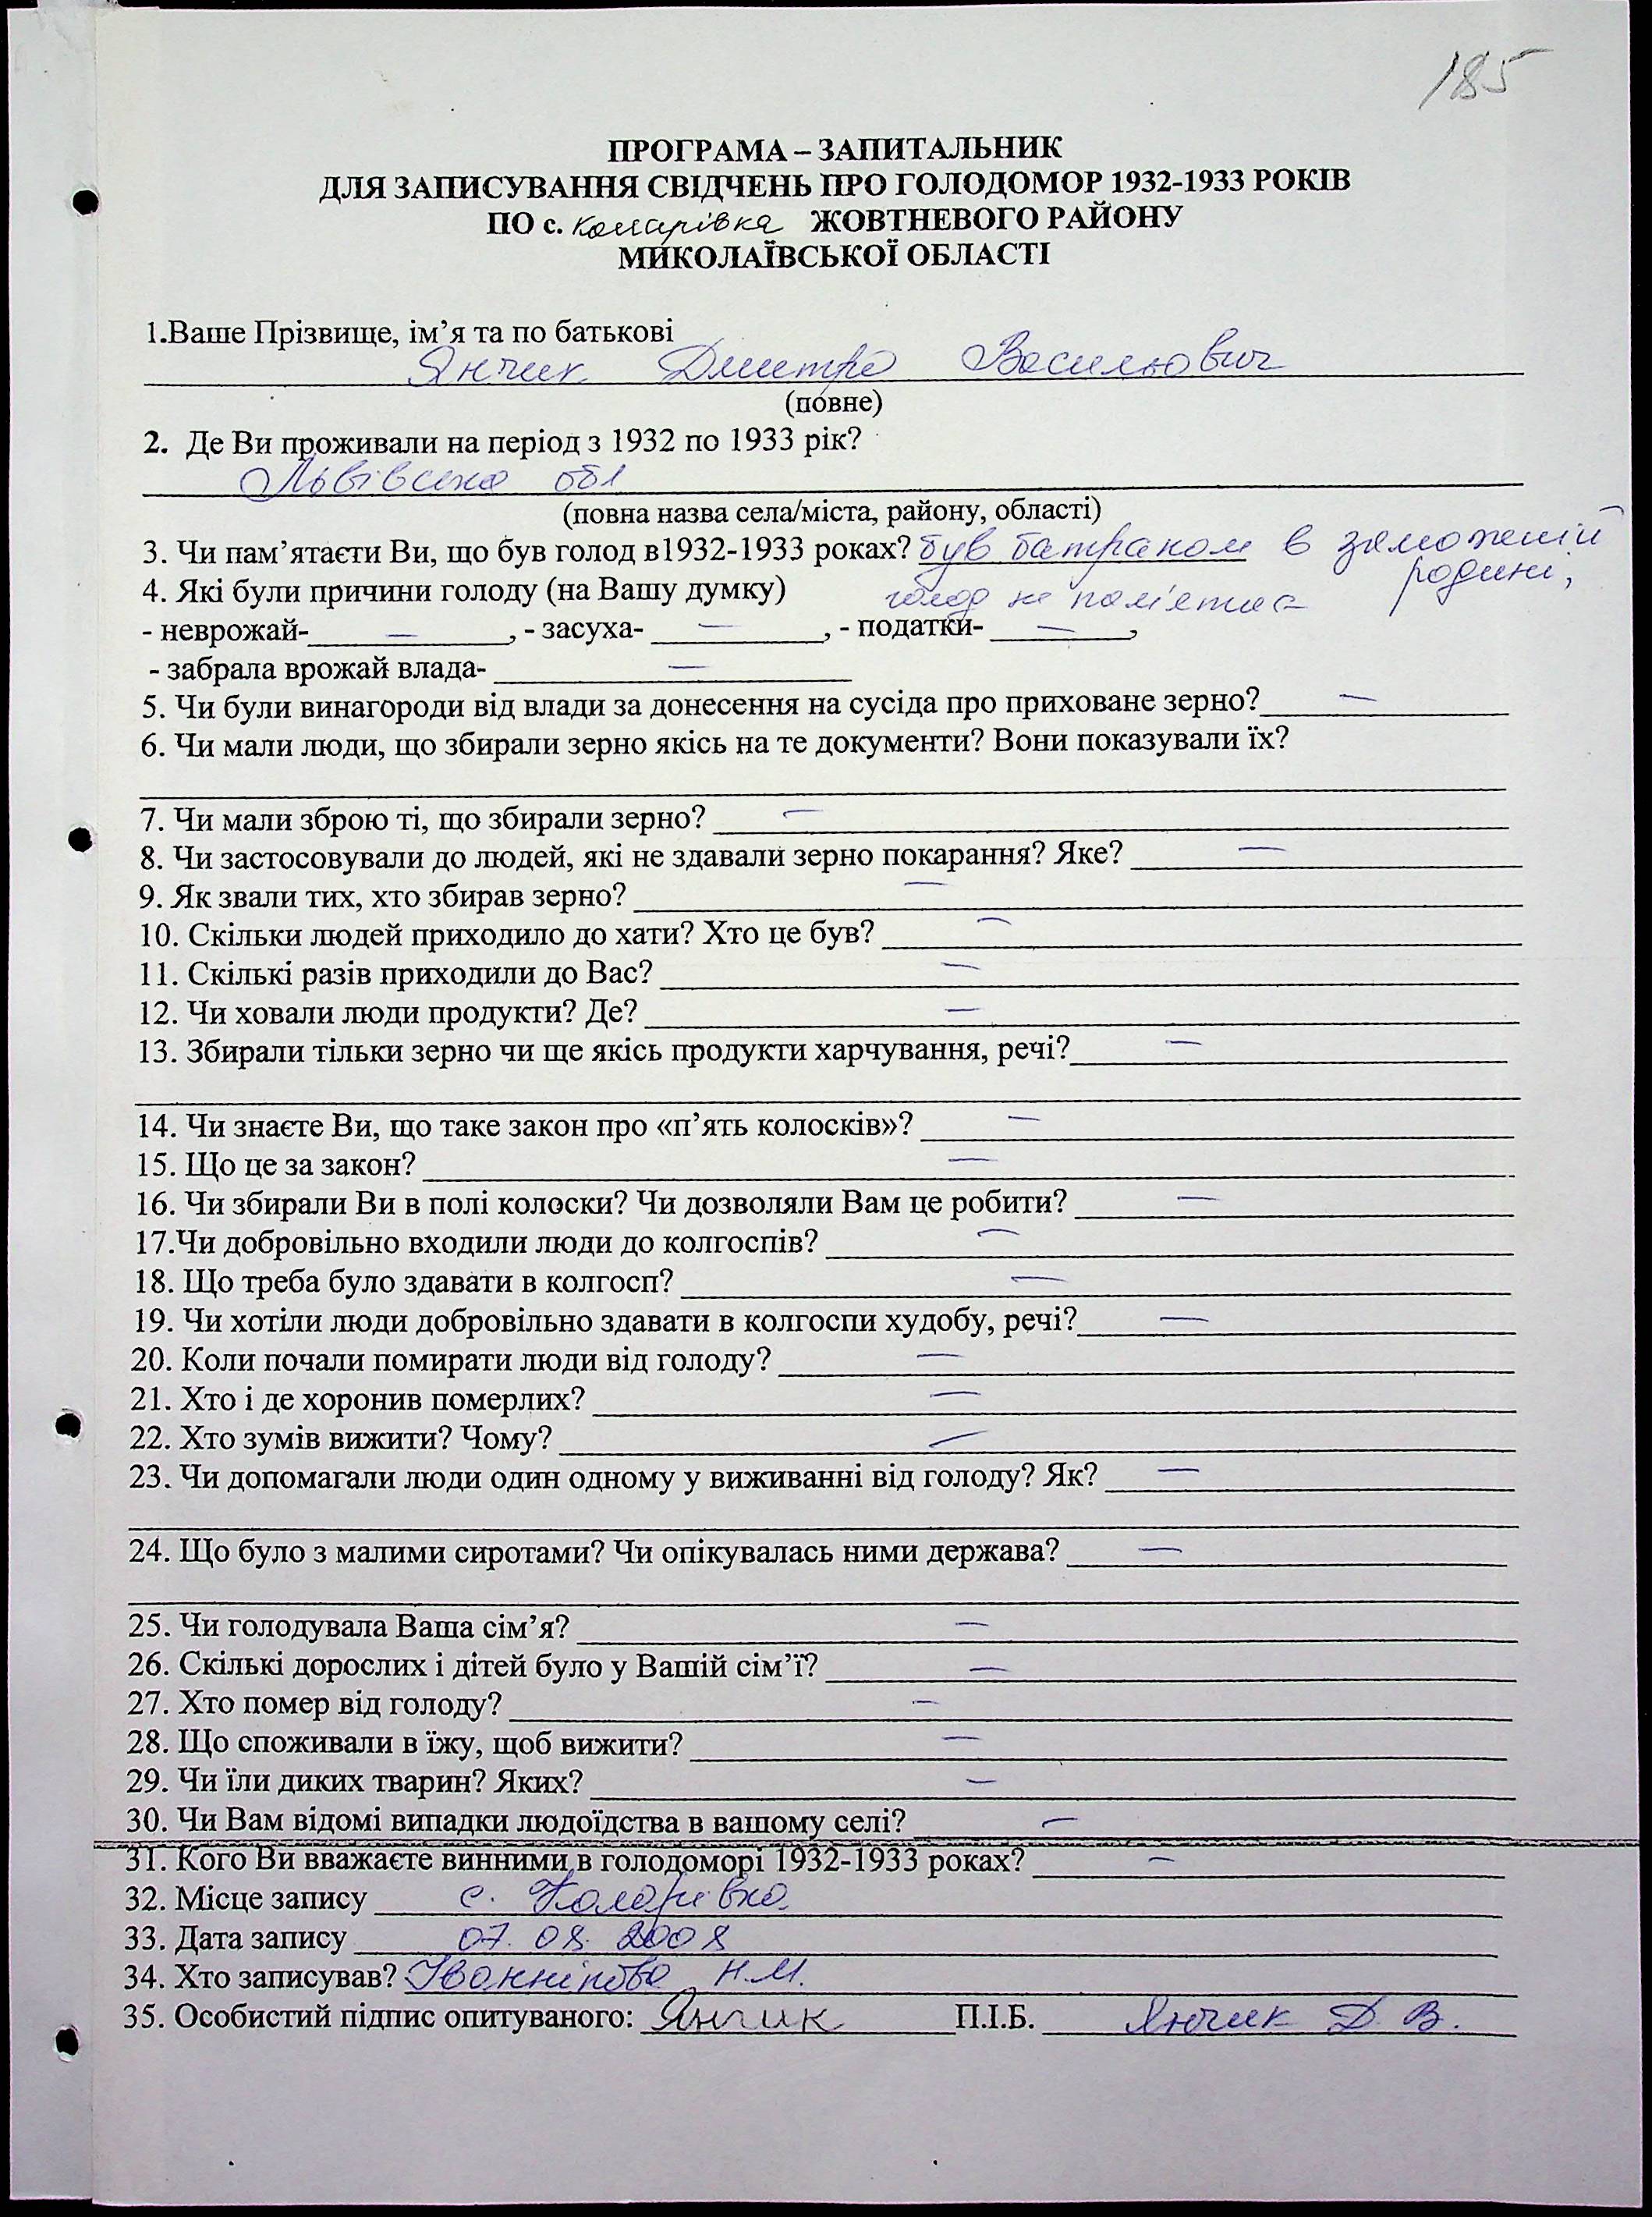 185
ПРОГРАМА – ЗАПИТАЛЬНИК
ДЛЯ ЗАПИСУВАННЯ СВІДЧЕНЬ ПРО ГОЛОДОМОР 1932-1933 РОКІВ
ПО с. Комарівка ЖОВТНЕВОГО РАЙОНУ
МИКОЛАЇВСЬКОЇ ОБЛАСТІ
1.Ваше Прізвище, ім’я та по батькові
Янчик Дмитро Васильович
(повне)
2. Де Ви проживали на період з 1932 по 1933 рік?
Львівська обл
(повна назва села/міста, району, області)
3. Чи пам’ятаєти Ви, що був голод в1932-1933 роках? був батраком в заможній
родині,
4. Які були причини голоду (на Вашу думку) голод не пам'ятає
- неврожай- — , - засуха- — , - податки- — ,
- забрала врожай влада- —
5. Чи були винагороди від влади за донесення на сусіда про приховане зерно? —
6. Чи мали люди, що збирали зерно якісь на те документи? Вони показували їх?
7. Чи мали зброю ті, що збирали зерно? —
8. Чи застосовували до людей, які не здавали зерно покарання? Яке? —
9. Як звали тих, хто збирав зерно? —
10. Скільки людей приходило до хати? Хто це був? —
11. Скількі разів приходили до Вас? —
12. Чи ховали люди продукти? Де? —
13. Збирали тільки зерно чи ще якісь продукти харчування, речі? —
14. Чи знаєте Ви, що таке закон про «п’ять колосків»? —
15. Що це за закон? —
16. Чи збирали Ви в полі колоски? Чи дозволяли Вам це робити? —
17.Чи добровільно входили люди до колгоспів? —
18. Що треба було здавати в колгосп? —
19. Чи хотіли люди добровільно здавати в колгоспи худобу, речі? —
20. Коли почали помирати люди від голоду? —
21. Хто і де хоронив померлих? —
22. Хто зумів вижити? Чому? —
23. Чи допомагали люди один одному у виживанні від голоду? Як? —
24. Що було з малими сиротами? Чи опікувалась ними держава? —
25. Чи голодувала Ваша сім’я? —
26. Скількі дорослих і дітей було у Вашій сім’ї? —
27. Хто помер від голоду? —
28. Що споживали в їжу, щоб вижити? —
29. Чи їли диких тварин? Яких? —
30. Чи Вам відомі випадки людоїдства в вашому селі? —
31. Кого Ви вважаєте винними в голодоморі 1932-1933 роках? —
32. Місце запису с. Комарівка
33. Дата запису 07. 08. 2008
34. Хто записував? Н.М.
35. Особистий підпис опитуваного: Янчик П.І.Б. Янчик Д. В.